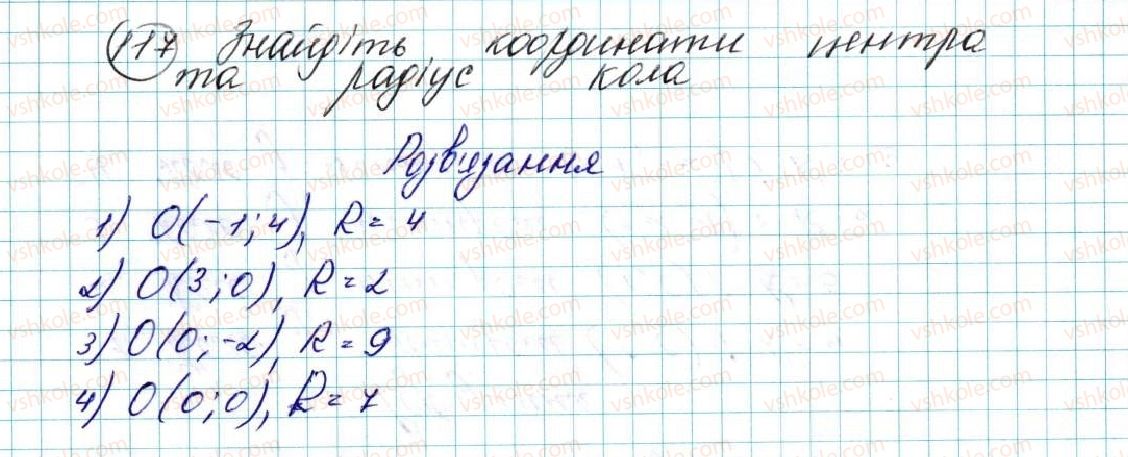 117 Знайдіть координати центра
та радіус кола
Розв'язання
1) O(-1; 4), R = 4
2) O(3; 0), R = 2
3) O(0; -2), R = 9
4) O(0; 0), R = 7